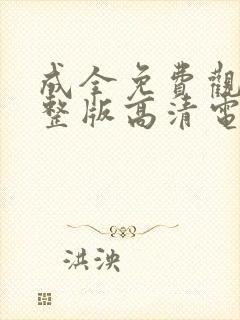 成全免費觀
整版高清電
洪泱